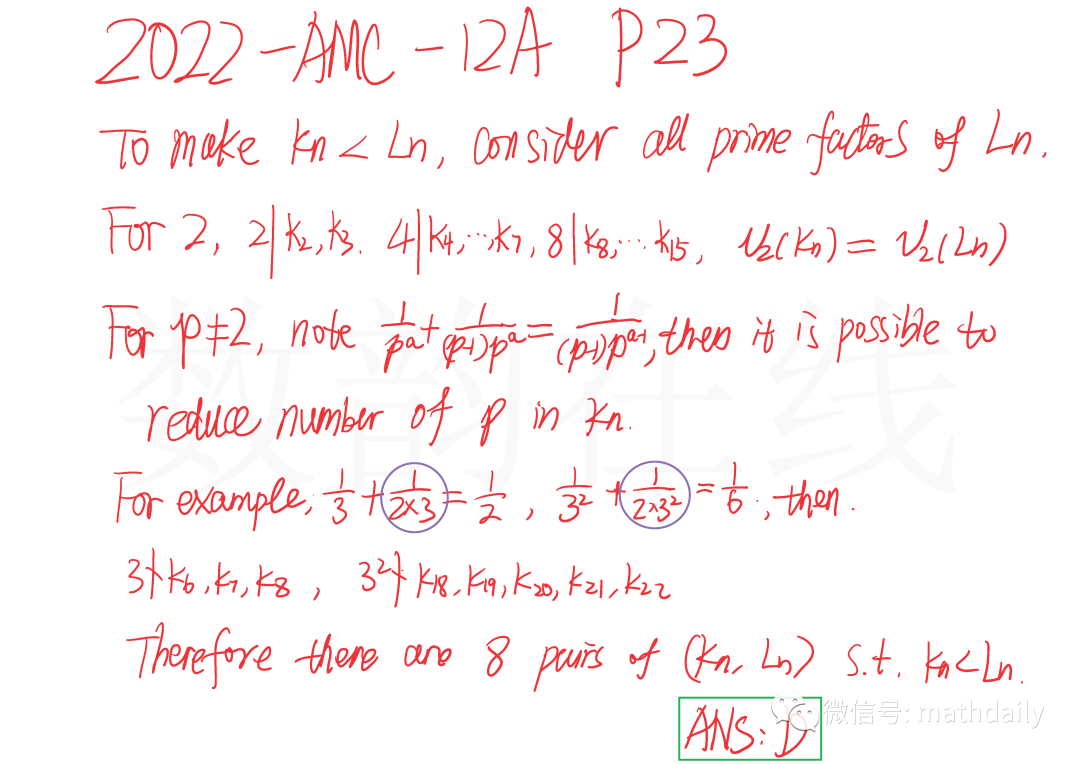 2022-AMC-12A P23
To make kn < Ln, consider all prime factors of Ln.
For 2, 2|k₂,k₃. 4|k₄,…,k₇, 8|k₈,… k₁₅, ν₂(kn) = ν₂(Ln)
For p≠2, note 1/p^a + 1/((p-1)p^a) = 1/((p-1)p^(a-1)), then it is possible to
reduce number of p in kn.
For example, 1/3 + 1/(2×3) = 1/2, 1/3² + 1/(2×3²) = 1/6, then.
3∤k₆,k₇,k₈, 3²∤k₁₈,k₁₉,k₂₀,k₂₁,k₂₂
Therefore there are 8 pairs of (kn, Ln) s.t. kn<Ln.
ANS: D
微信号: mathdaily
数韵在线